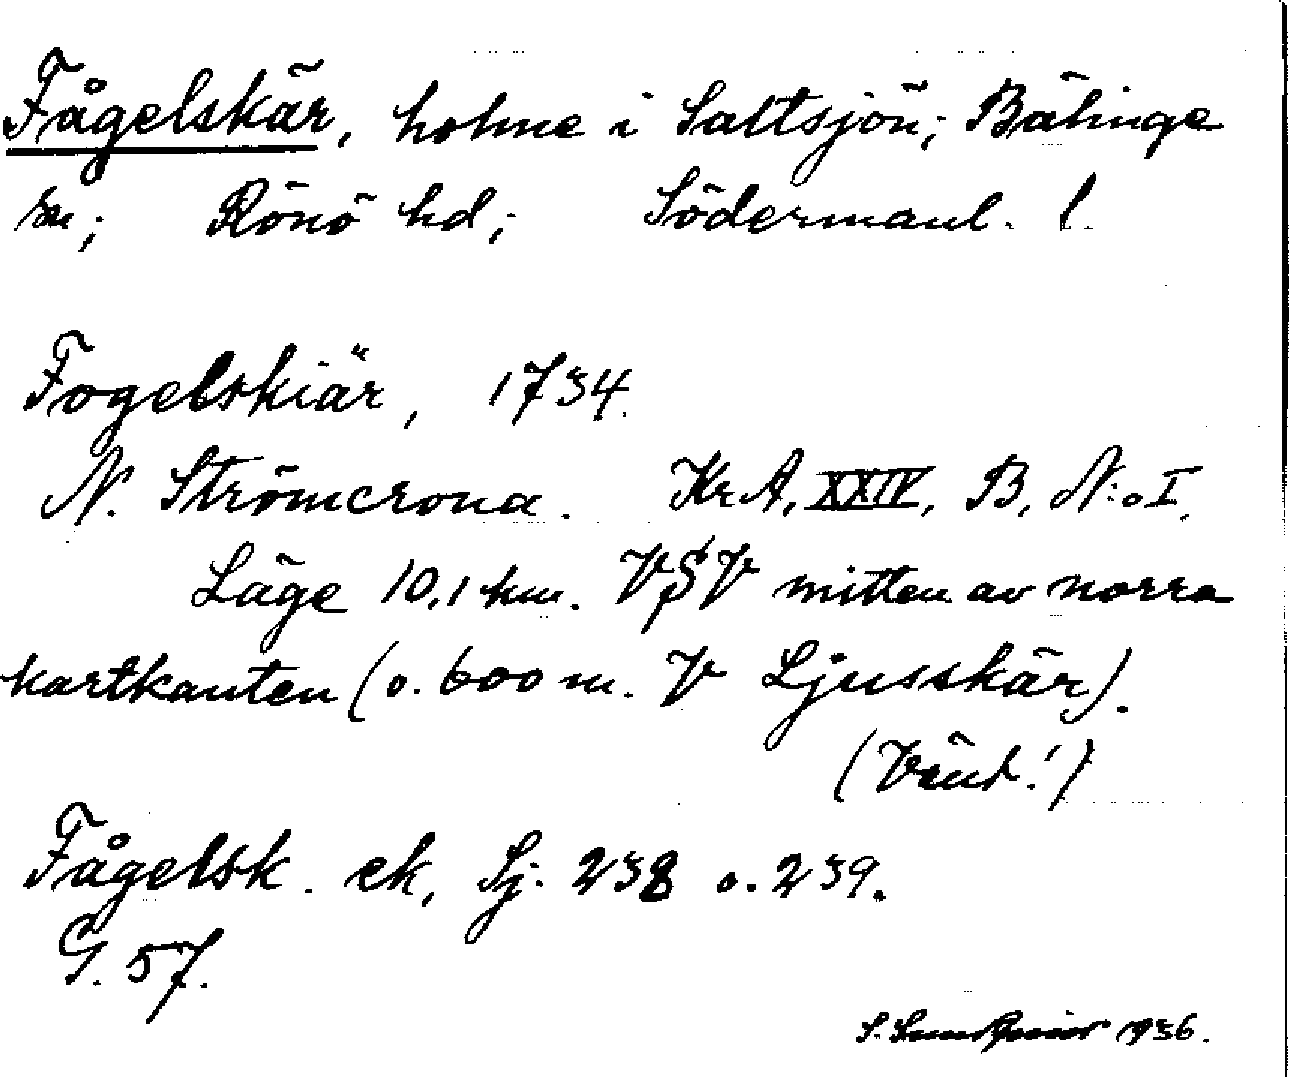 Fågelskär, holme i Saltsjön; Bälinge
sn; Rönö hd; Södermanl. l.
Fogelskiär, 1734.
N. Strömcrona. Kr.A. XXIV, B, N:o I.
Läge 10,1 km. VSV mitten av norra
kartkanten (o. 600 m. V Ljusskär).
(Vänd!)
Fågelsk. ek, Sj. 238 o. 239.
G. 57.
S. 1936.